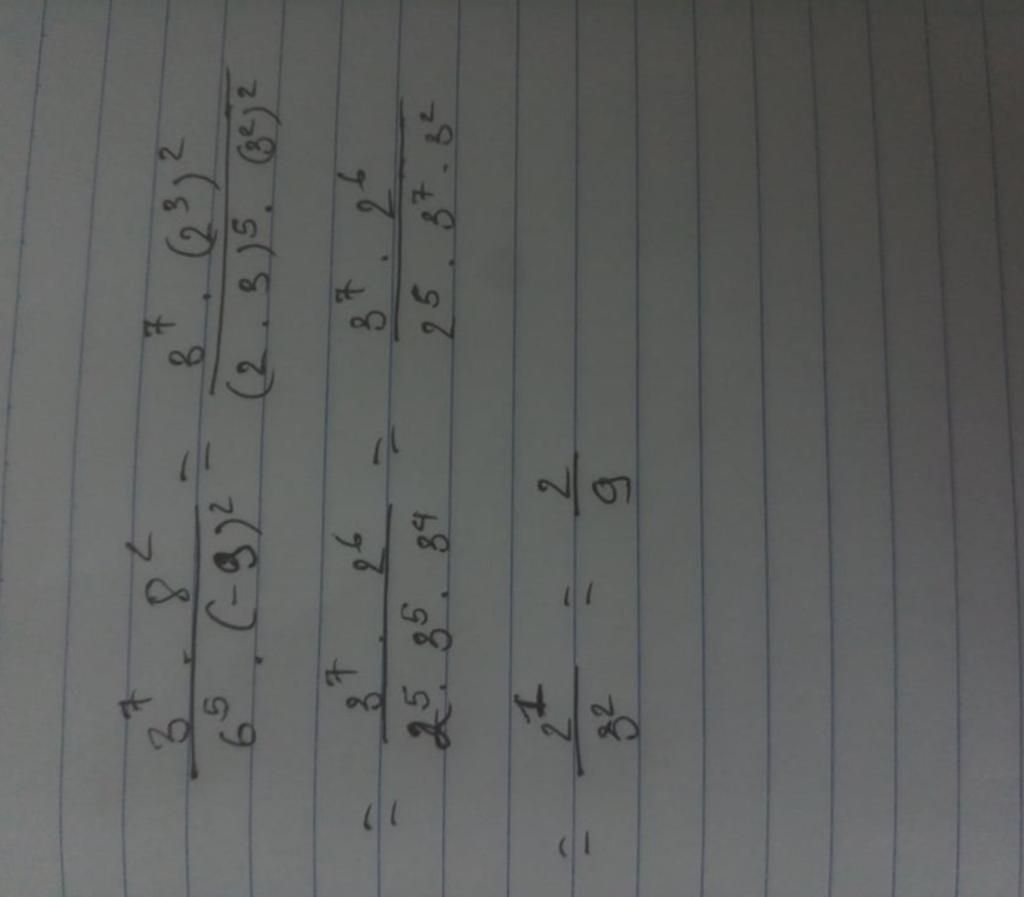 3^7 . 8^2 / 6^5 . (-9)^2 = 3^7 . (2^3)^2 / (2 . 3)^5 . (3^2)^2
= 3^7 . 2^6 / 2^5 . 3^5 . 3^4 = 3^7 . 2^6 / 2^5 . 3^7 . 3^2
= 2^1 / 3^2 = 2 / 9